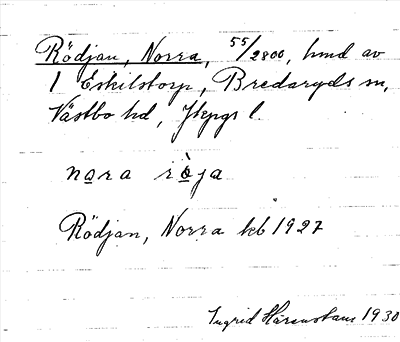 Rödjan, Norra, 55/2800, hmd av
1 Eskilstorp, Bredaryds sn,
Västbo hd, Jkpgs l.
nora ròja
Rödjan, Norra kb 1927
Ingrid 1930